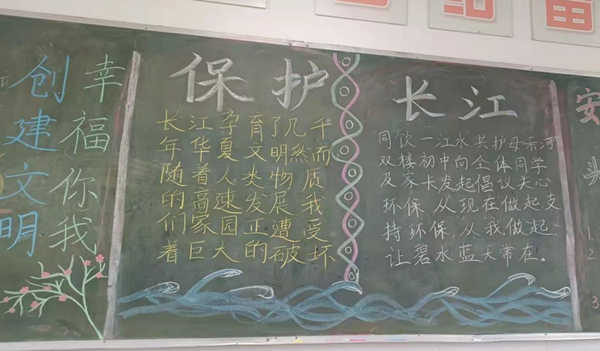 创建文明
幸福你我
保护
长江
长江孕育了几千
年华夏文明然而
随着人类物质
的高速发展我
们家园正遭受
着巨大的破坏
"同饮一江水共护母亲河
双楼初中向全体同学
及家长发起倡议关心
环保,从现在做起支
持环保,从我做起、
让碧水蓝天常在。
安
1.
2
3